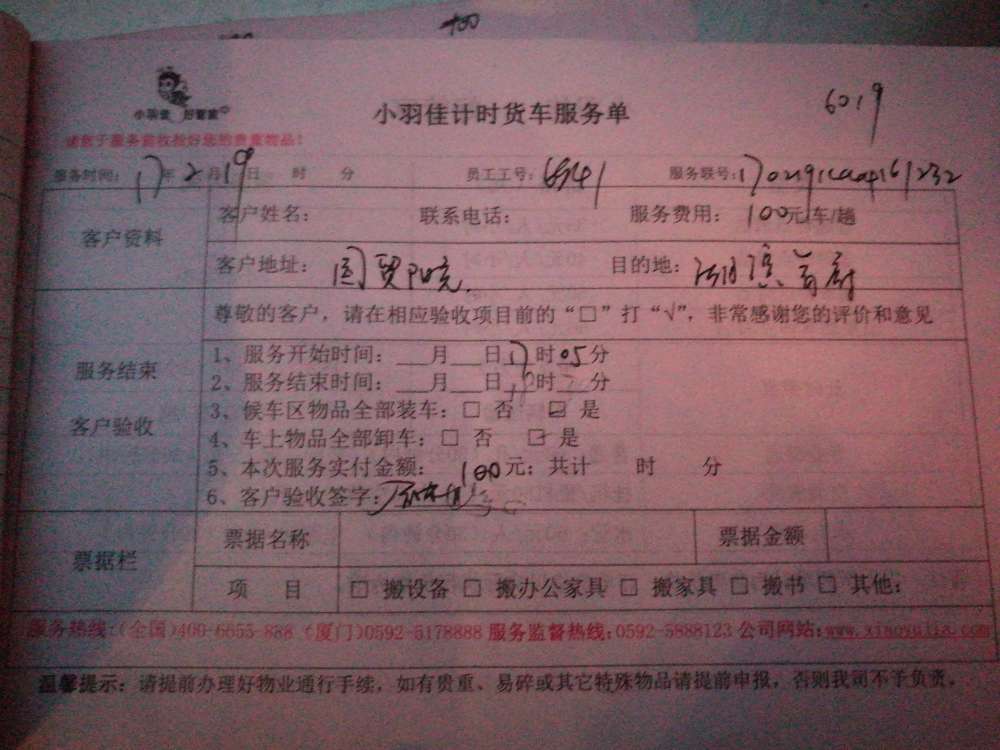 100
小羽佳 好管家
小羽佳计时货车服务单
6019
请您于服务前收拾好您的贵重物品！
服务时间：17年2月19日 时 分 员工工号： 服务联号：
客户资料
客户姓名： 联系电话： 服务费用：100元/车/趟
客户地址：国贸阳光 目的地：湖滨首府
尊敬的客户，请在相应验收项目前的“□”打“√”，非常感谢您的评价和意见
服务结束
客户验收
1、服务开始时间：___月___日17时05分
2、服务结束时间：___月___日 时 分
3、候车区物品全部装车：□ 否 ☑ 是
4、车上物品全部卸车：□ 否 ☑ 是
5、本次服务实付金额： 100元；共计 时 分
6、客户验收签字：
票据栏
票据名称 票据金额
项 目 □ 搬设备 □ 搬办公家具 □ 搬家具 □ 搬书 □ 其他：
服务热线：(全国)400-6655-888（厦门)0592-5178888 服务监督热线：0592-5888123 公司网站：www.xiaoyujia.com
温馨提示：请提前办理好物业通行手续，如有贵重、易碎或其它特殊物品请提前申报，否则我司不予负责。